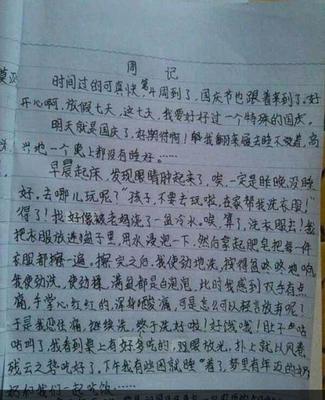 周记
时间过的可真快第4周到了,国庆节也跟着来到了。好
开心啊,放假七天,这七天,我要好好过一个特殊的国庆。
明天就是国庆了,好期待啊!够我翻来履去睡不效着,高
兴地一个晚上都没有睡好……
早晨起床,发现眼睛肿起来了,唉,一定是昨晚没睡
好。去哪儿玩呢?"孩子,不要去玩啦,在家帮我洗衣服,"
得了!我好像被老妈浇了一盆冷水。唉,算了,洗衣服去!我
把衣服放进盆子里,用水浸泡一下,然后拿起肥皂把每一件
衣服都擦一遍。擦完之后,我使劲地洗,按得盆咚咚地响
我使劲洗,使劲揉,满盆都是白泡泡,此时我感到双手有点
痛,手掌心红红的,浑身酸痛,可是怎么可以轻言放弃呢!
于是我忍住痛,继续洗,终于洗好啦!好饿哦!肚子
咕叫了,我看到桌上有好多吃的,双眼放光,扑上就以风卷
残云之势吃好了,下午我有些困就睡"着了,梦里有年迈的
和我们一起吃饭……